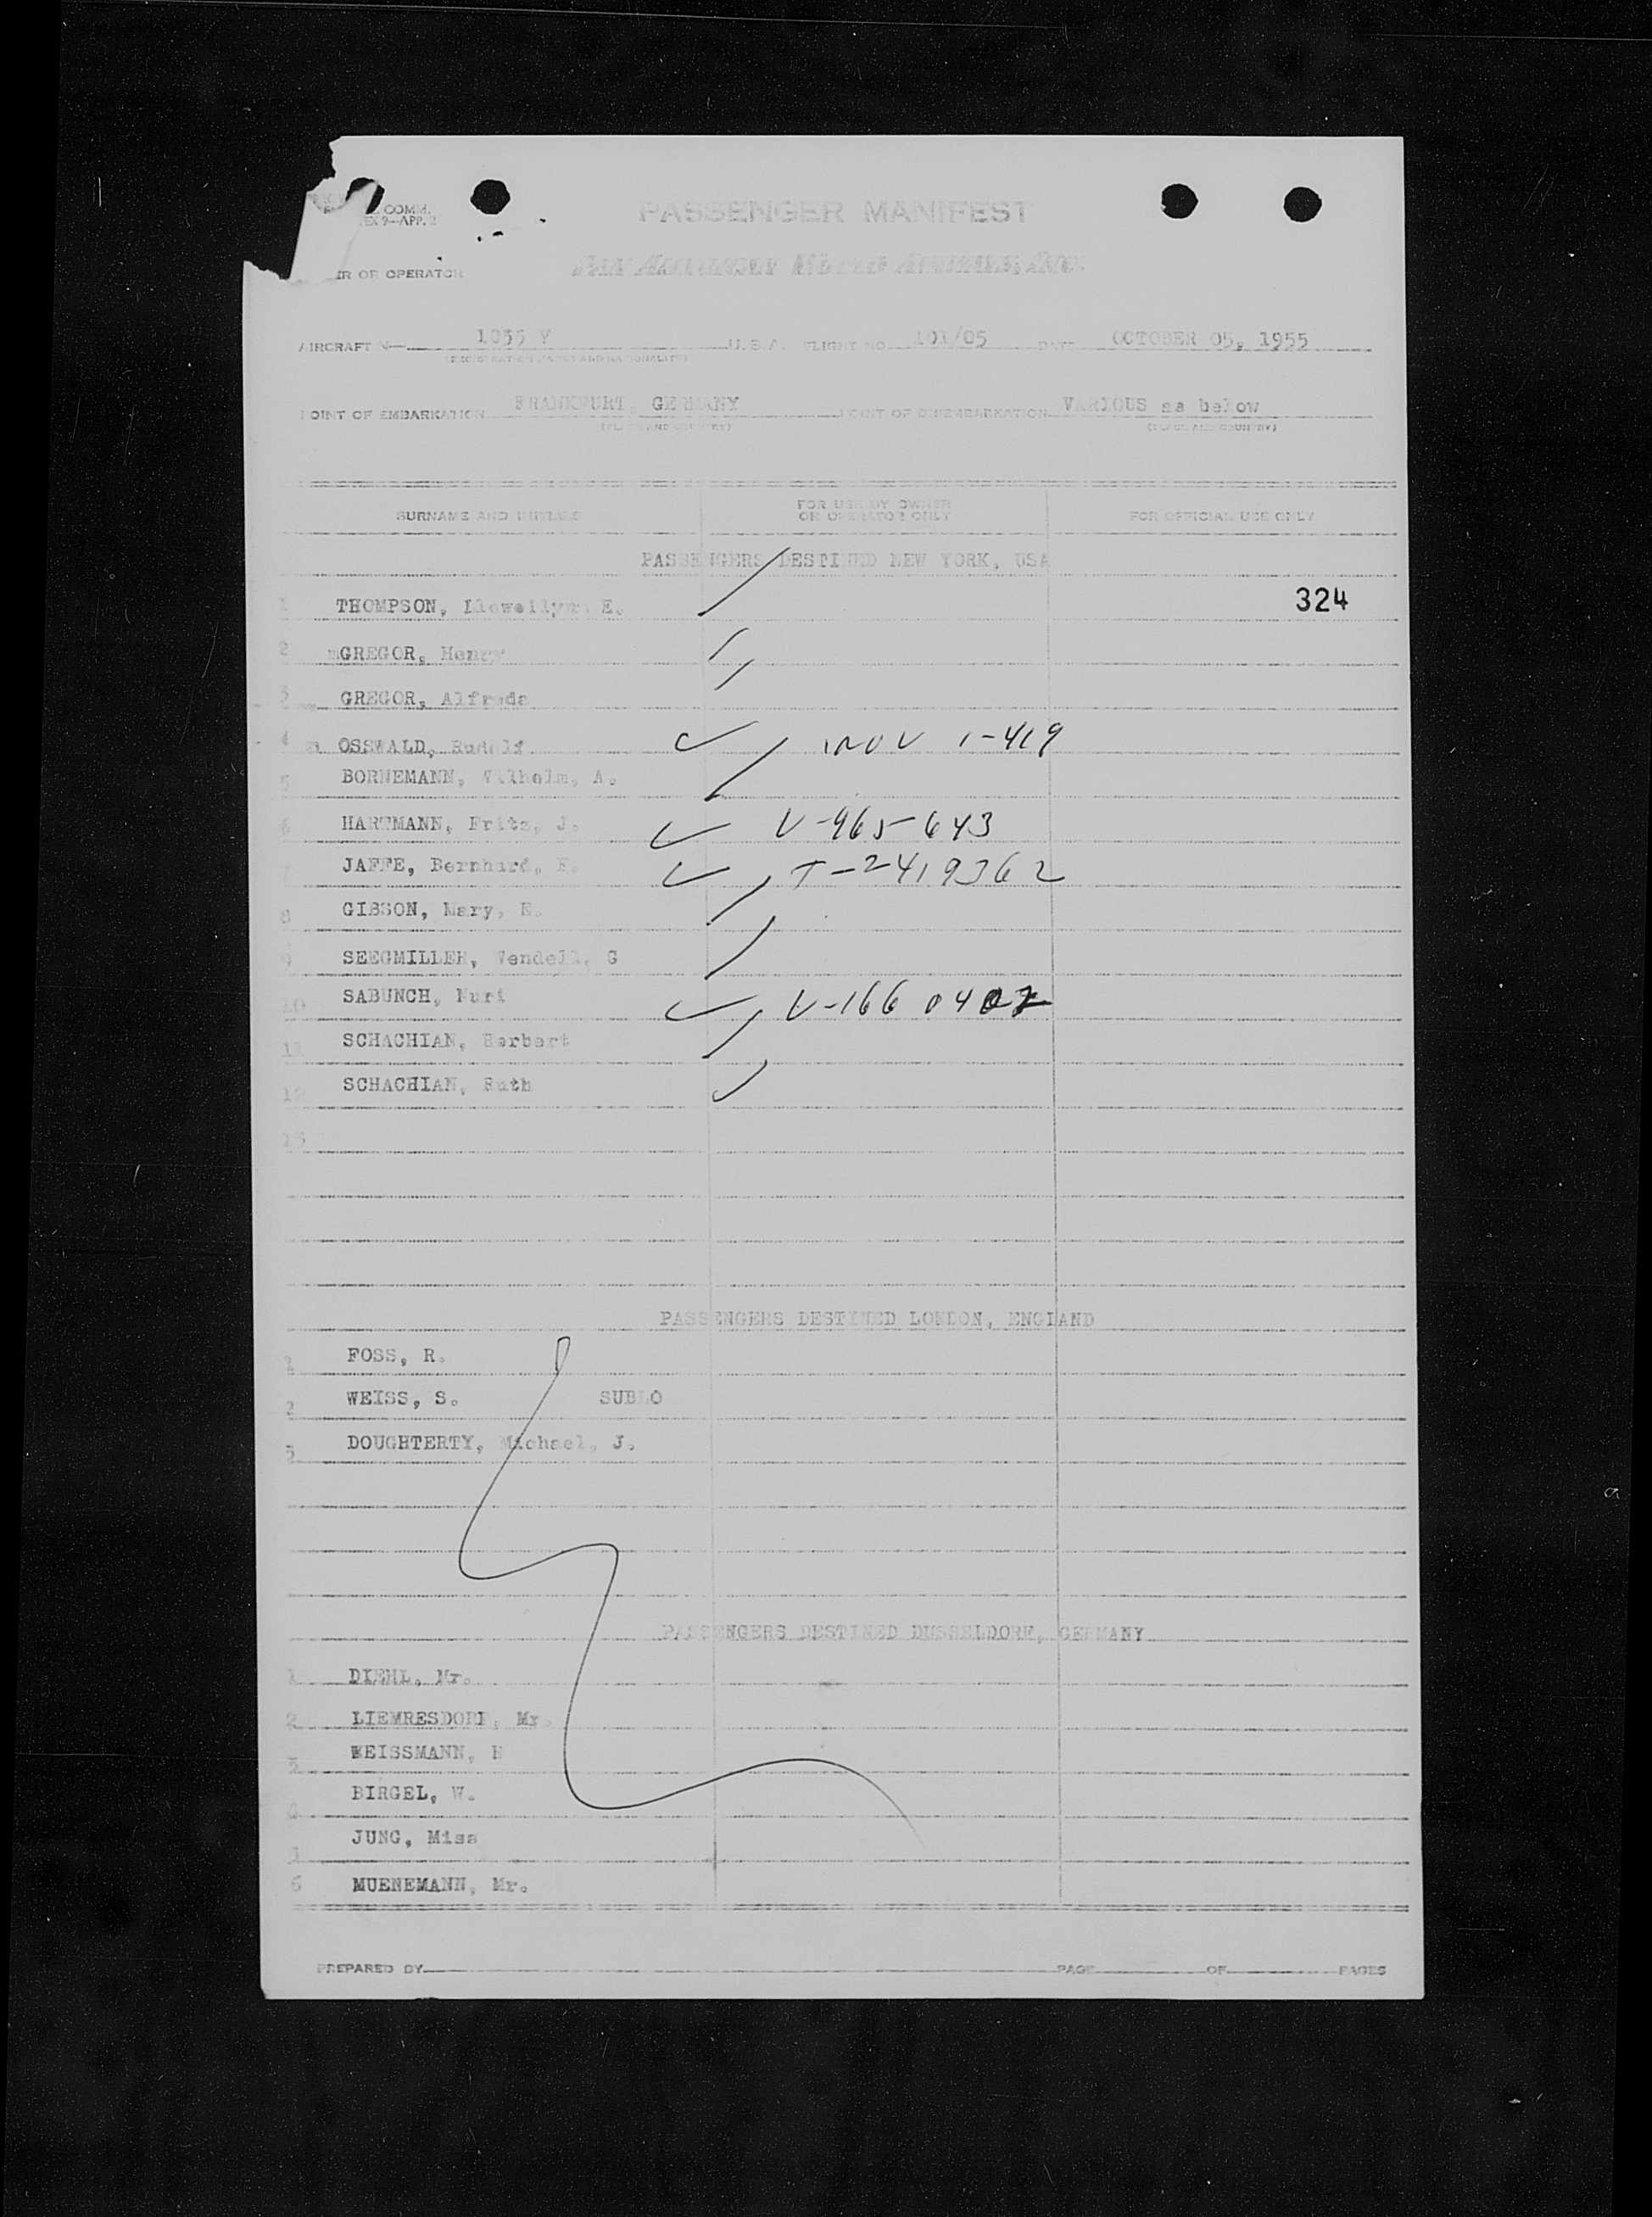 COMM.
9—APP. 2
PASSENGER MANIFEST
OR OPERATOR PAN AMERICAN WORLD AIRWAYS, INC.
AIRCRAFT N— 1035 V U.S.A. FLIGHT NO. 101/05 DATE OCTOBER 05, 1955
(REGISTRATION MARKS AND NATIONALITY)
POINT OF EMBARKATION FRANKFURT, GERMANY POINT OF DISEMBARKATION VARIOUS as below
(PLACE AND COUNTRY) (PLACE AND COUNTRY)
SURNAME AND INITIALS FOR USE BY OWNER OR OPERATOR ONLY FOR OFFICIAL USE ONLY
PASSENGERS DESTINED NEW YORK, USA
1 THOMPSON, Llewellyn. E. 324
2 GREGOR, Henry
3 GREGOR, Alfreda
4 OSSWALD, Rudolf 1-419
5 BORNEMANN, Wilhelm, A.
6 HARTMANN, Fritz, J. V-965-643
7 JAFFE, Bernhard, T-2419362
8 GIBSON, Mary, E.
9 SEEGMILLER, Wendell, G
10 SABUNCH, Nuri
11 SCHACHIAN, Herbert
12 SCHACHIAN, Ruth
13
PASSENGERS DESTINED LONDON, ENGLAND
1 FOSS, R.
2 WEISS, S. SUBLO
3 DOUGHTERTY, Michael, J.
PASSENGERS DESTINED DUSSELDORF, GERMANY
1 DIEHL, Mr.
2 LIEMRESDORF, Mr.
3 WEISSMANN, H
4 BIRGEL, W.
JUNG, Miss
6 MUENEMANN, Mr.
PREPARED BY PAGE OF PAGES